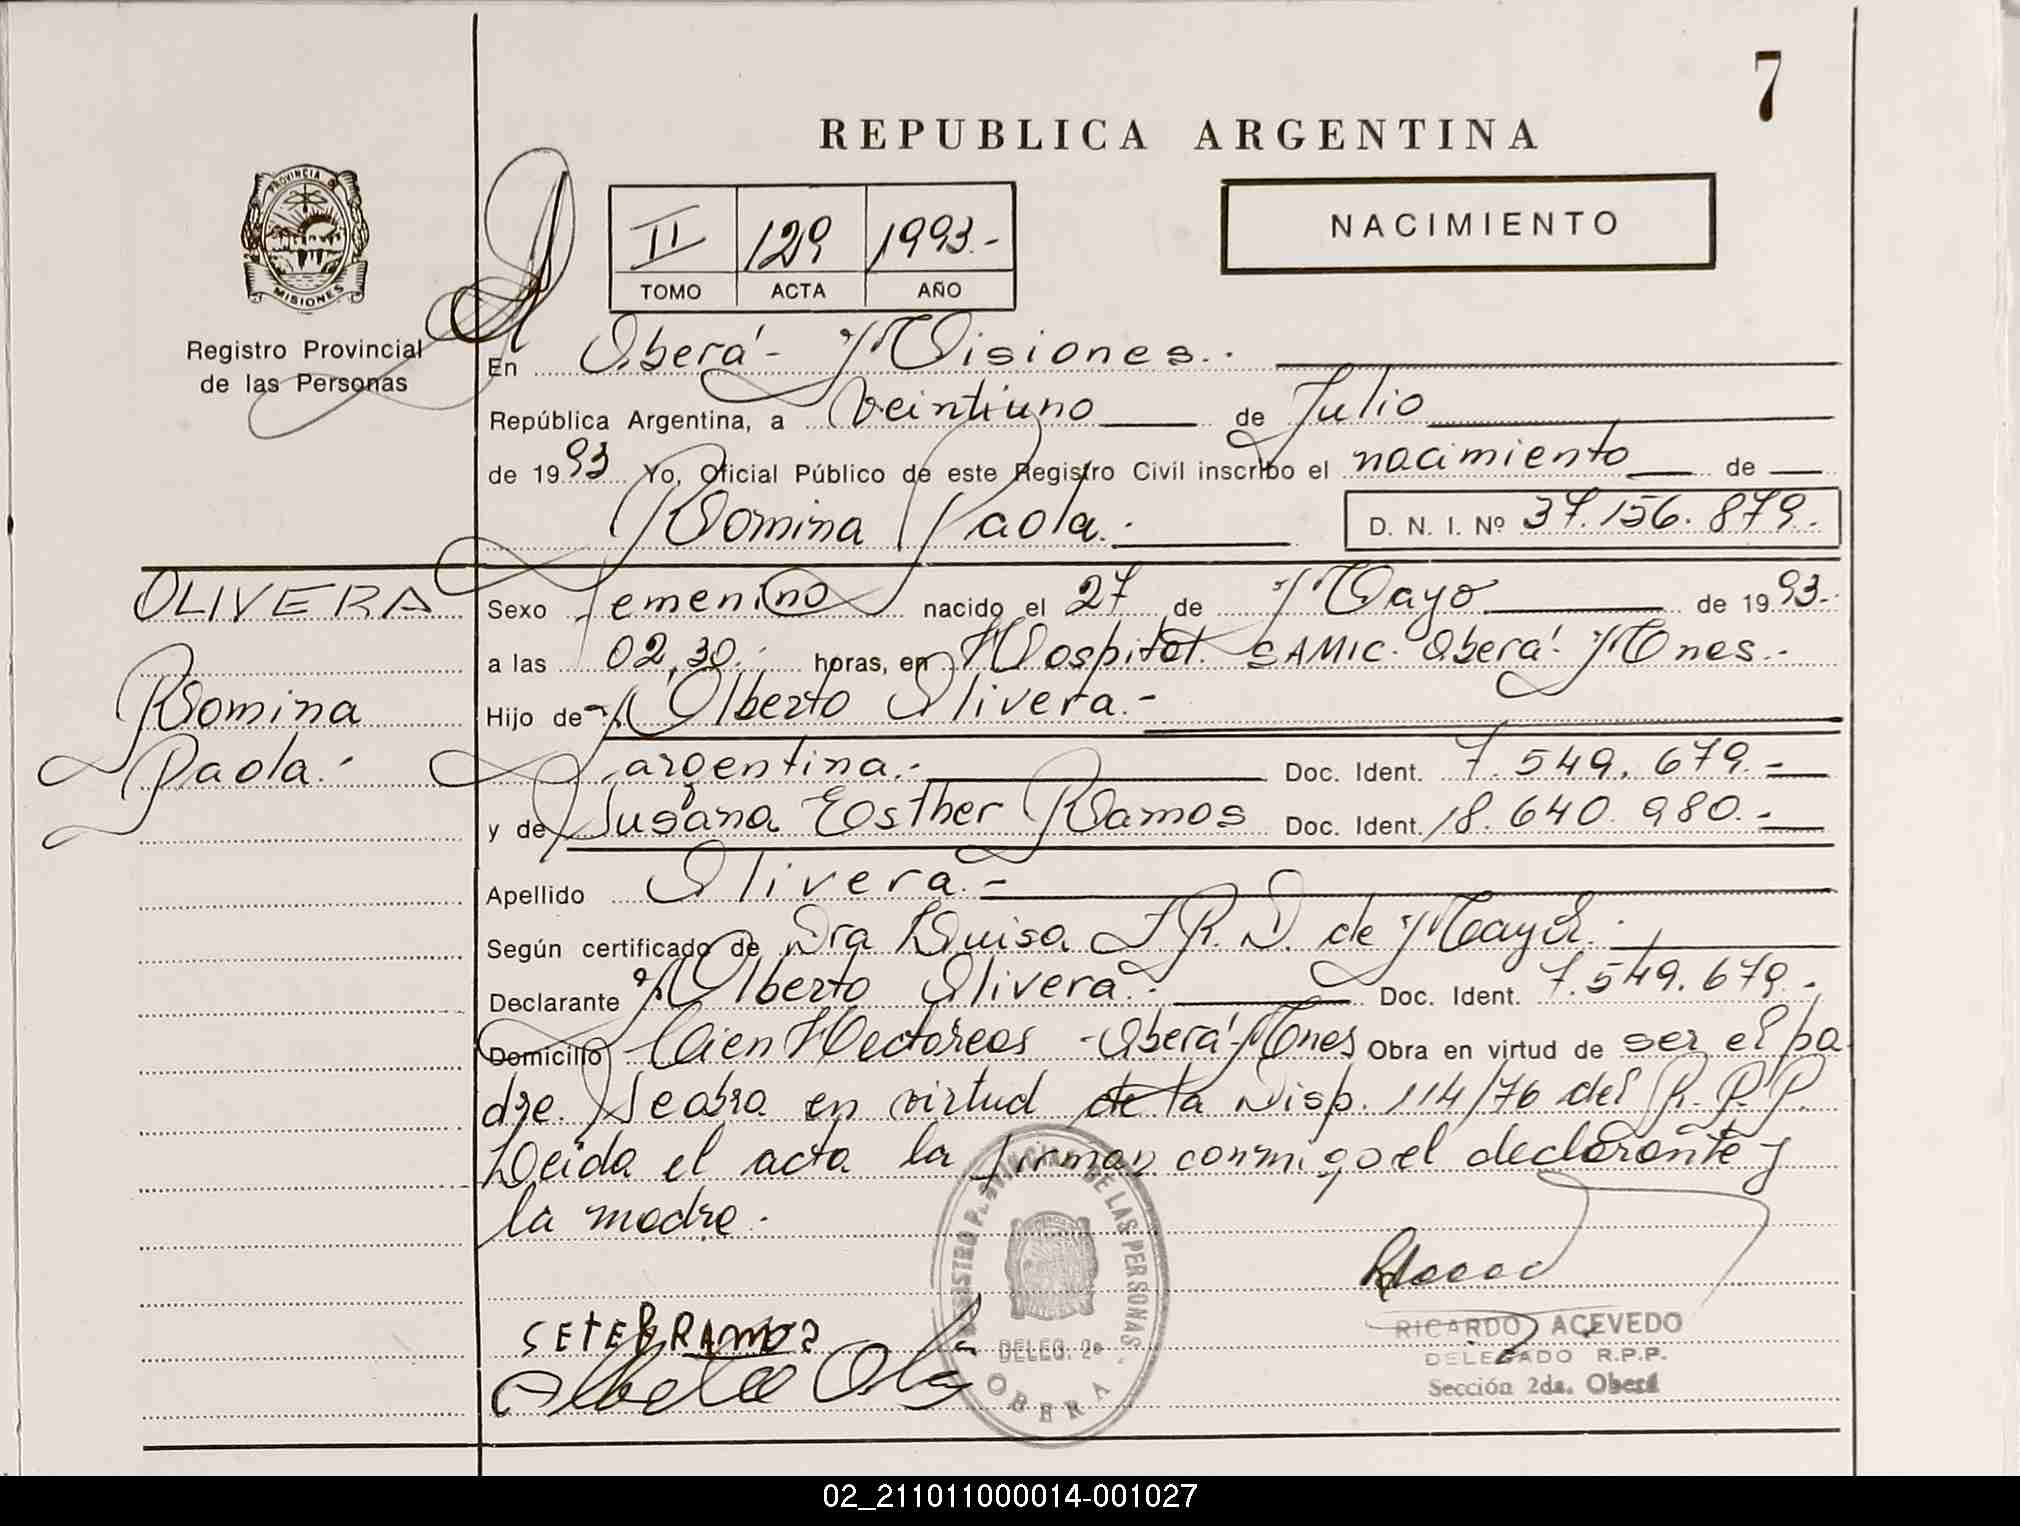 7
REPUBLICA ARGENTINA
PROVINCIA DE
MISIONES
Registro Provincial
de las Personas
II 129 1993.-
TOMO ACTA AÑO
NACIMIENTO
En Oberá - Misiones.-
República Argentina, a Veintiuno de Julio
de 1993 Yo, Oficial Público de este Registro Civil inscribo el nacimiento de
Romina Paola.- D. N. I. Nº 37.156.879.-
OLIVERA
Romina
Paola.-
Sexo Femenino nacido el 27 de Mayo de 1993.-
a las 02,30.- horas, en Hospital SAMIC- Oberá- Mnes.-
Hijo de Alberto Olivera.-
argentina.- Doc. Ident. 7.549.679.-
y de Susana Esther Ramos Doc. Ident. 18.640.980.-
Apellido Olivera.-
Según certificado de Dra Luisa R. D. de Mayer.-
Declarante Alberto Olivera.- Doc. Ident. 7.549.679.-
Domicilio Cien Hectáreas - Oberá- Mnes Obra en virtud de ser el pa
dre. Se obra en virtud de la Disp. 114/76 del R.P.P.
Leida el acta la firman conmigo el declarante y
la madre.-
REGISTRO PROVINCIAL DE LAS PERSONAS
DELEG. 2ª
OBERA
RAMOS
RICARDO ACEVEDO
DELEGADO R.P.P.
Sección 2da. Oberá
02_211011000014-001027